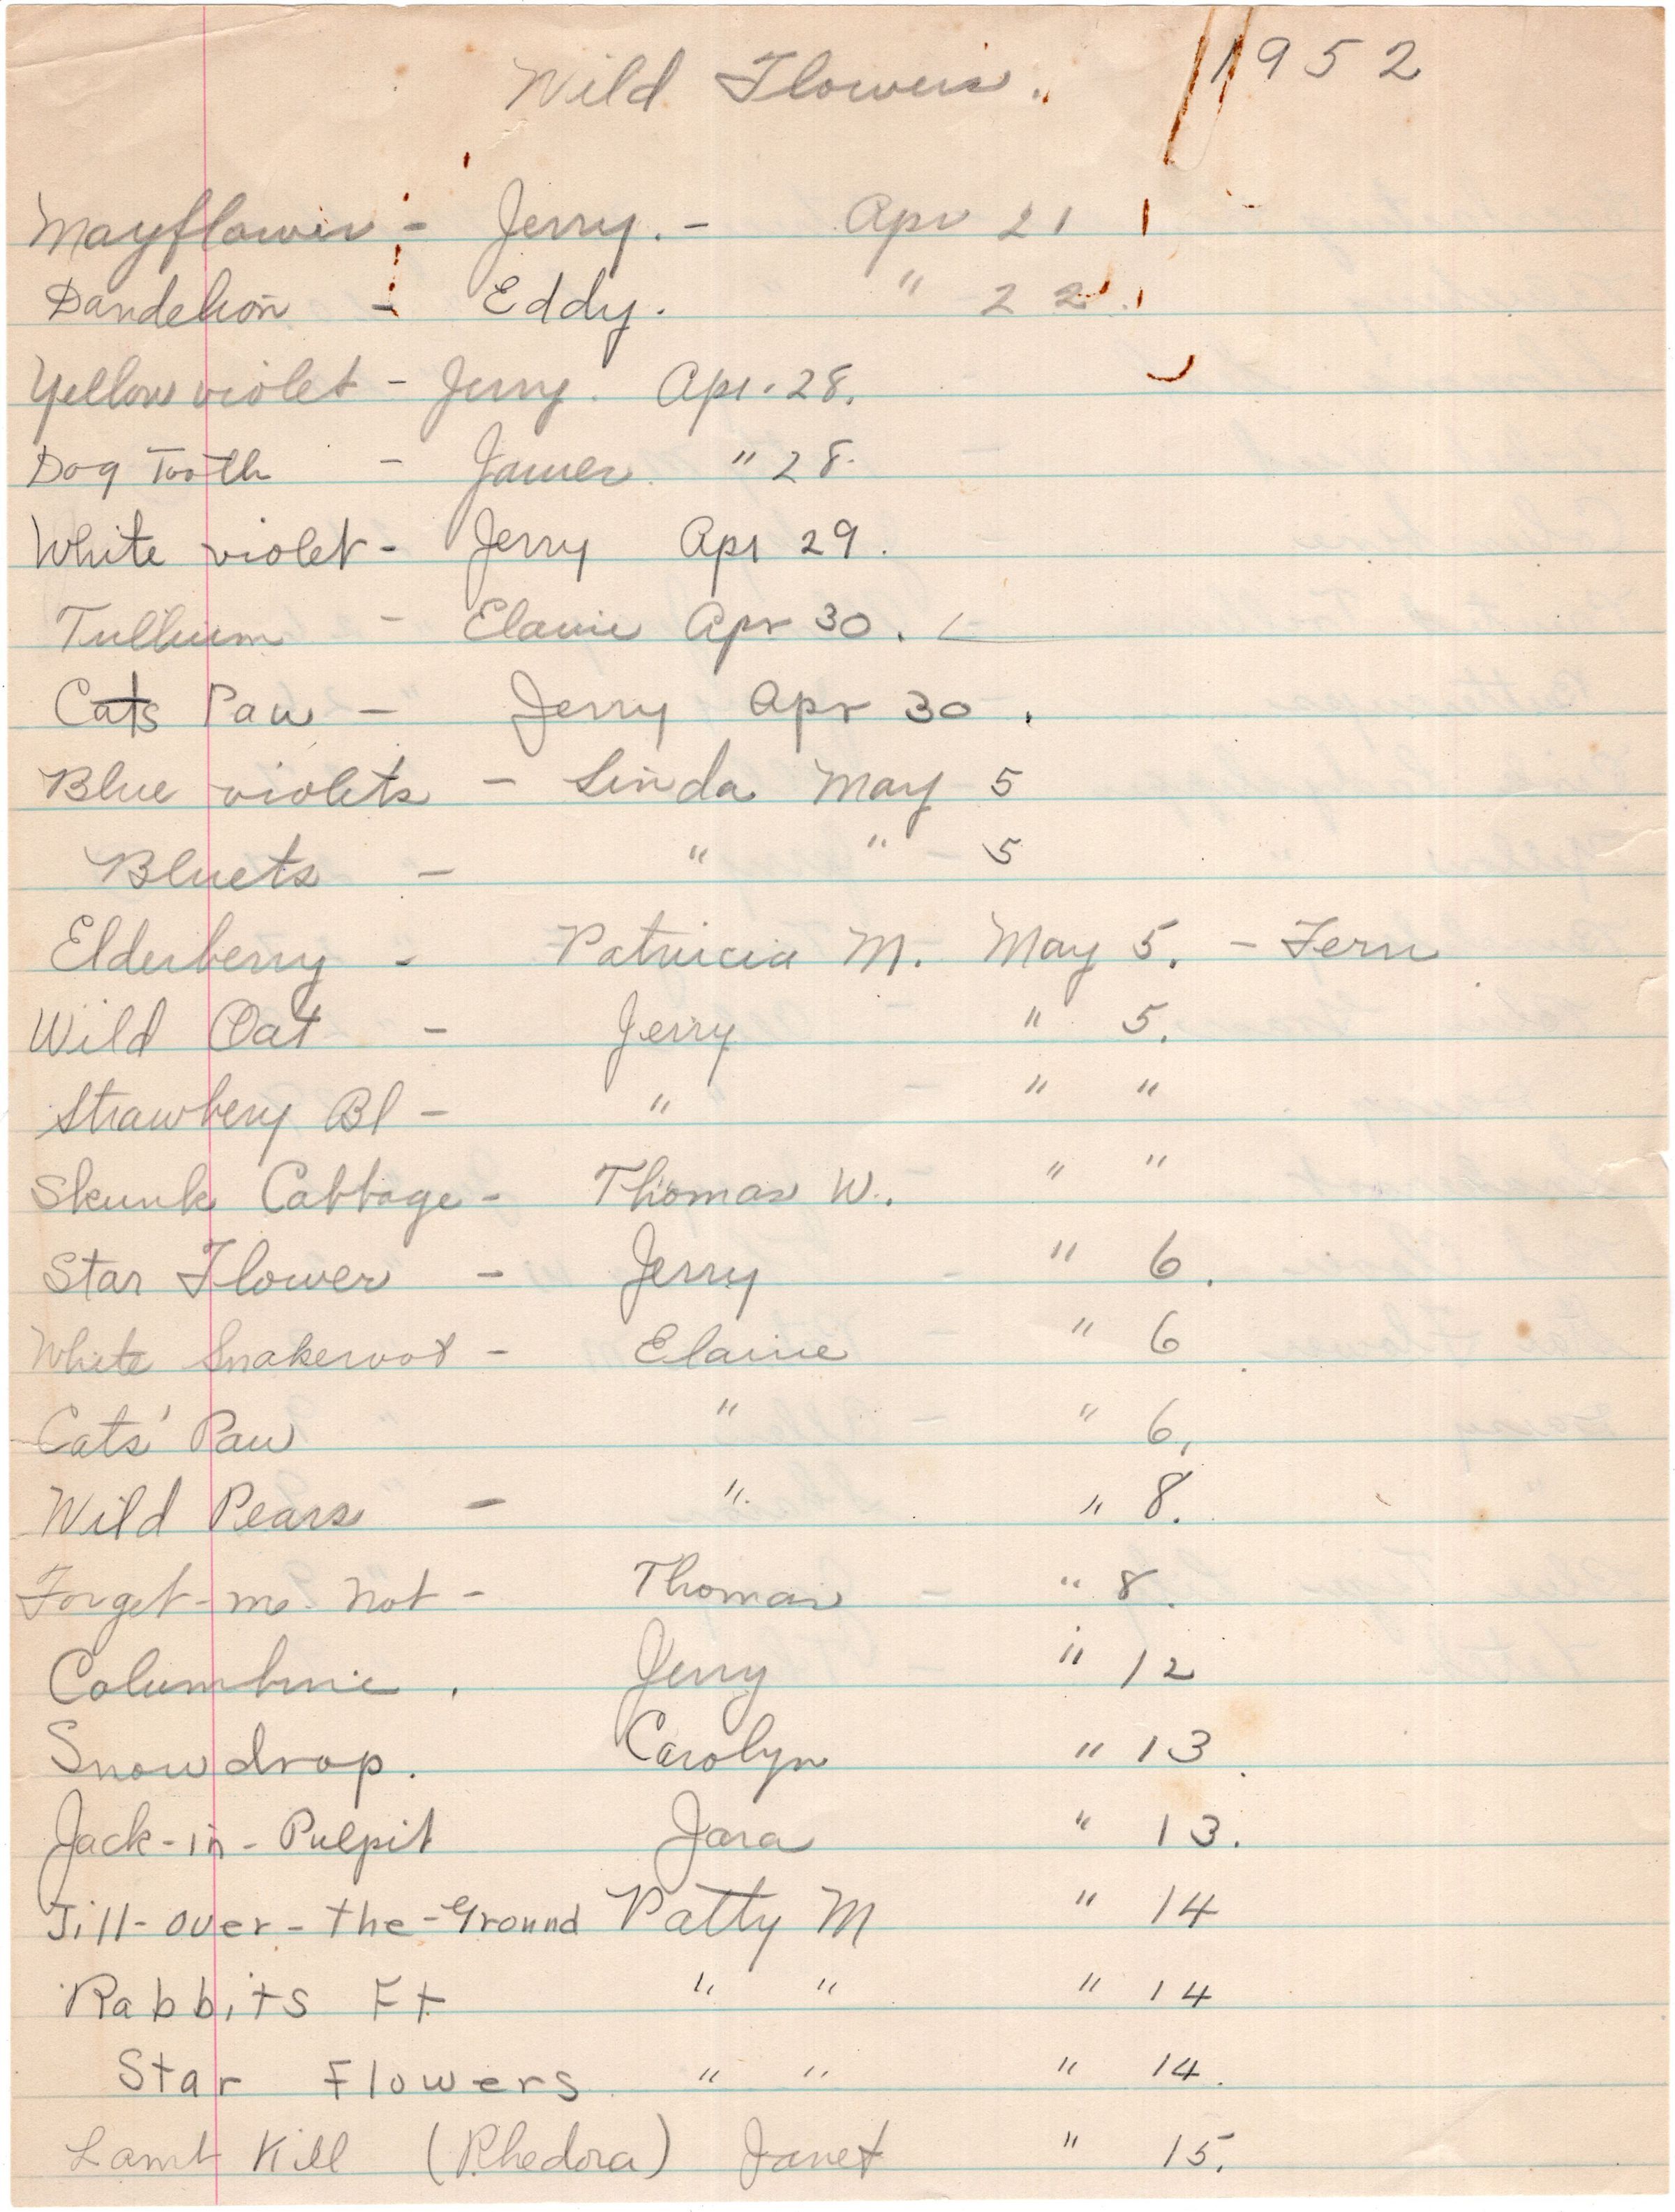 Wild Flowers. 1952
Mayflower - Jerry. - Apr 21
Dandelion - Eddy. " 22
Yellow violet - Jerry. Apr. 28.
Dog Tooth - James " 28.
White violet - Jerry Apr 29.
Trillium - Elaine Apr 30.
Cats Paw - Jerry Apr 30.
Blue violets - Linda May 5
Bluets - " " 5
Elderberry - Patricia M. May 5. - Fern
Wild Oat - Jerry " 5.
Strawbery Bl - " " "
Skunk Cabbage - Thomas W. " "
Star Flower - Jerry " 6.
White Snakeroot - Elaine " 6
Cats' Paw " " 6.
Wild Pears - " " 8.
Forget-me-not - Thomas " 8.
Columbine. Jerry " 12
Snowdrop. Carolyn " 13
Jack-in-Pulpit Jara " 13.
Jill-over-the-Ground Patty M " 14
Rabbits Ft " " " 14
Star Flowers " " " 14.
Lamb Kill (Rhedora) Janet " 15.